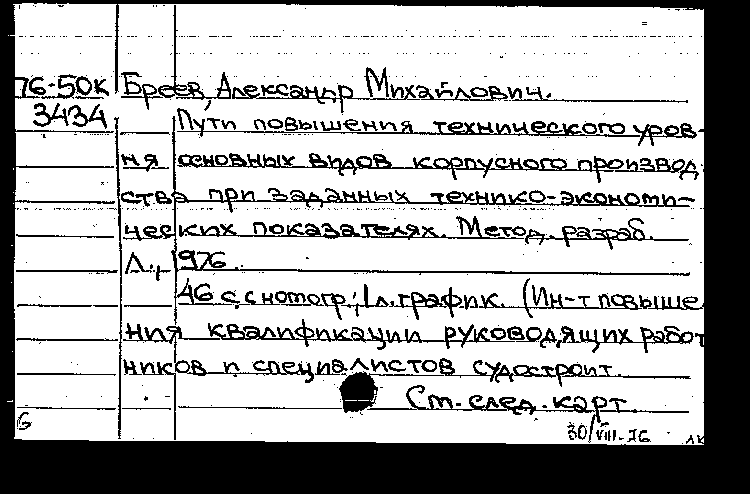 76-50к Бреев, Александр Михайлович.
3434 Пути повышения технического уров-
ня основных видов корпусного производ-
ства при заданных технико-экономи-
ческих показателях. Метод. разраб.
Л., 1976.
46 с. с номогр.; 1 л. график. (Ин-т повыше
ния квалификации руководящих работ
ников и специалистов судостроит.
См. след. карт.
6 30/VIII-76